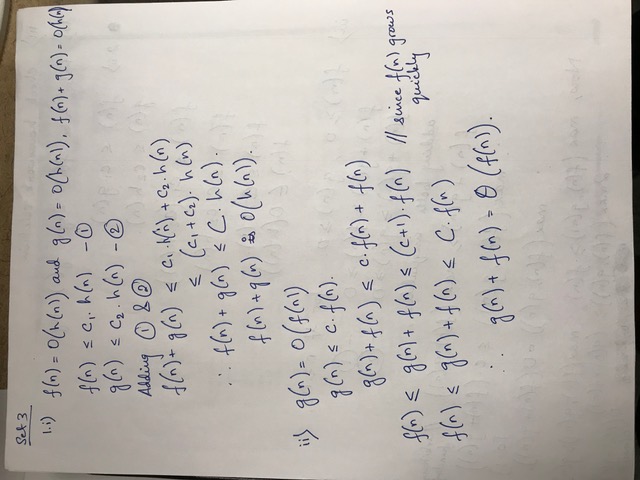 Set 3
1.i) f(n) = O(h(n)) and g(n) = O(h(n)), f(n) + g(n) = O(h(n)
f(n) ≤ c₁. h(n) - ①
g(n) ≤ c₂. h(n) - ②
Adding ① & ②
f(n) + g(n) ≤ c₁.h(n) + c₂.h(n)
≤ (c₁ + c₂). h(n)
∴ f(n) + g(n) ≤ C. h(n).
f(n) + g(n) is O(h(n)).
ii) g(n) = O(f(n))
g(n) ≤ c. f(n).
g(n) + f(n) ≤ c. f(n) + f(n)
f(n) ≤ g(n) + f(n) ≤ (c+1). f(n) // since f(n) grows
quickly
f(n) ≤ g(n) + f(n) ≤ C. f(n)
∴ g(n) + f(n) = Θ (f(n)).